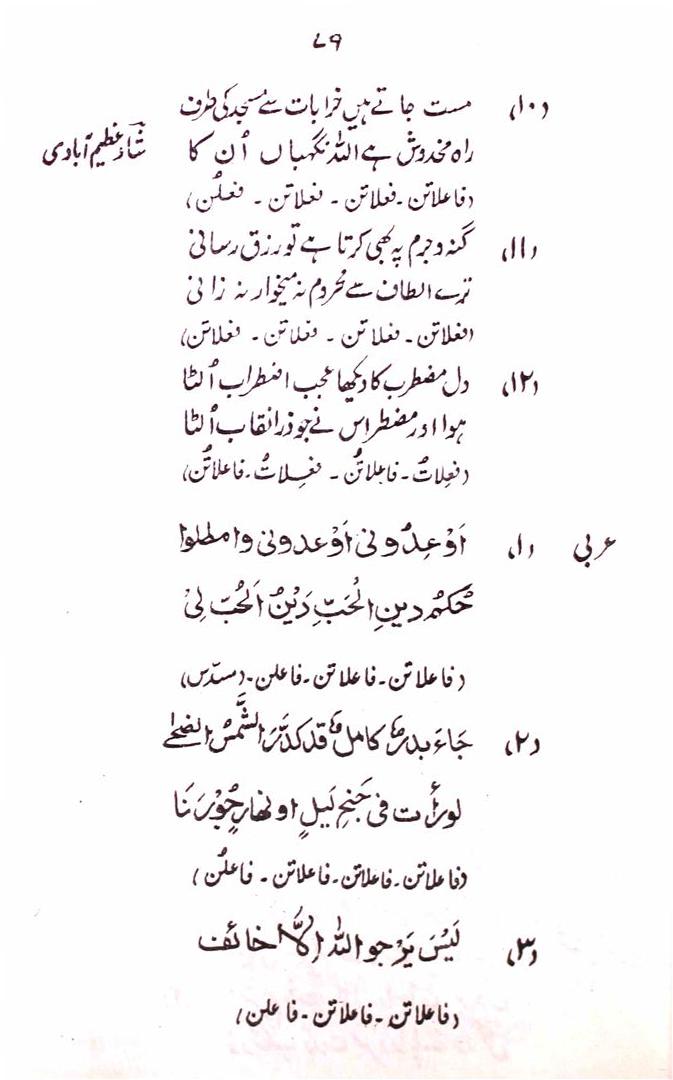 ۷۹
(۱۰) مست جاتے ہیں خرابات سے مسجد کی طرف
راہ مخدوش ہے اللہ نگہباں اُن کا شادؔ عظیم آبادی
(فاعلاتن ۔ فعلاتن ۔ فعلاتن ۔ فعلن)
(۱۱) گنہ و جرم پہ بھی کرتا ہے تو رزق رسانی
ترے الطاف سے محروم نہ میخوار نہ زانی
(فعلاتن ۔ فعلاتن ۔ فعلاتن ۔ فعلاتن)
(۱۲) دل مضطرب کا دیکھا عجب اضطراب اُلٹا
ہوا اور مضطر اس نے جو ذرا نقاب اُلٹا
(فعِلاتُ ۔ فاعِلاتُن ۔ فعِلاتُ ۔ فاعلاتُن)
عربی (۱) اَوْعِدُونی اَوْعدونی وامطلوا
حُکمُ دینِ الْحَبِّ دَیْنُ اَلحُبّ لِیْ
(فاعلاتن ۔ فاعلاتن ۔ فاعلن ۔ (مسدّس)
(۲) جَاءَ بدرٌ کاملٌ قد کدَّرَ الشَّمسُ الضحےٰ
لو رأت فی جَنحِ لَیلٍ او نهارٍ جُؤْرَنَا
(فاعلاتن ۔ فاعلاتن ۔ فاعلاتن ۔ فاعلُن)
(۳) لَیْسَ یَرْجو اللہَ اِلَّا خائف
(فاعلاتن ۔ فاعلاتن ۔ فاعلن)